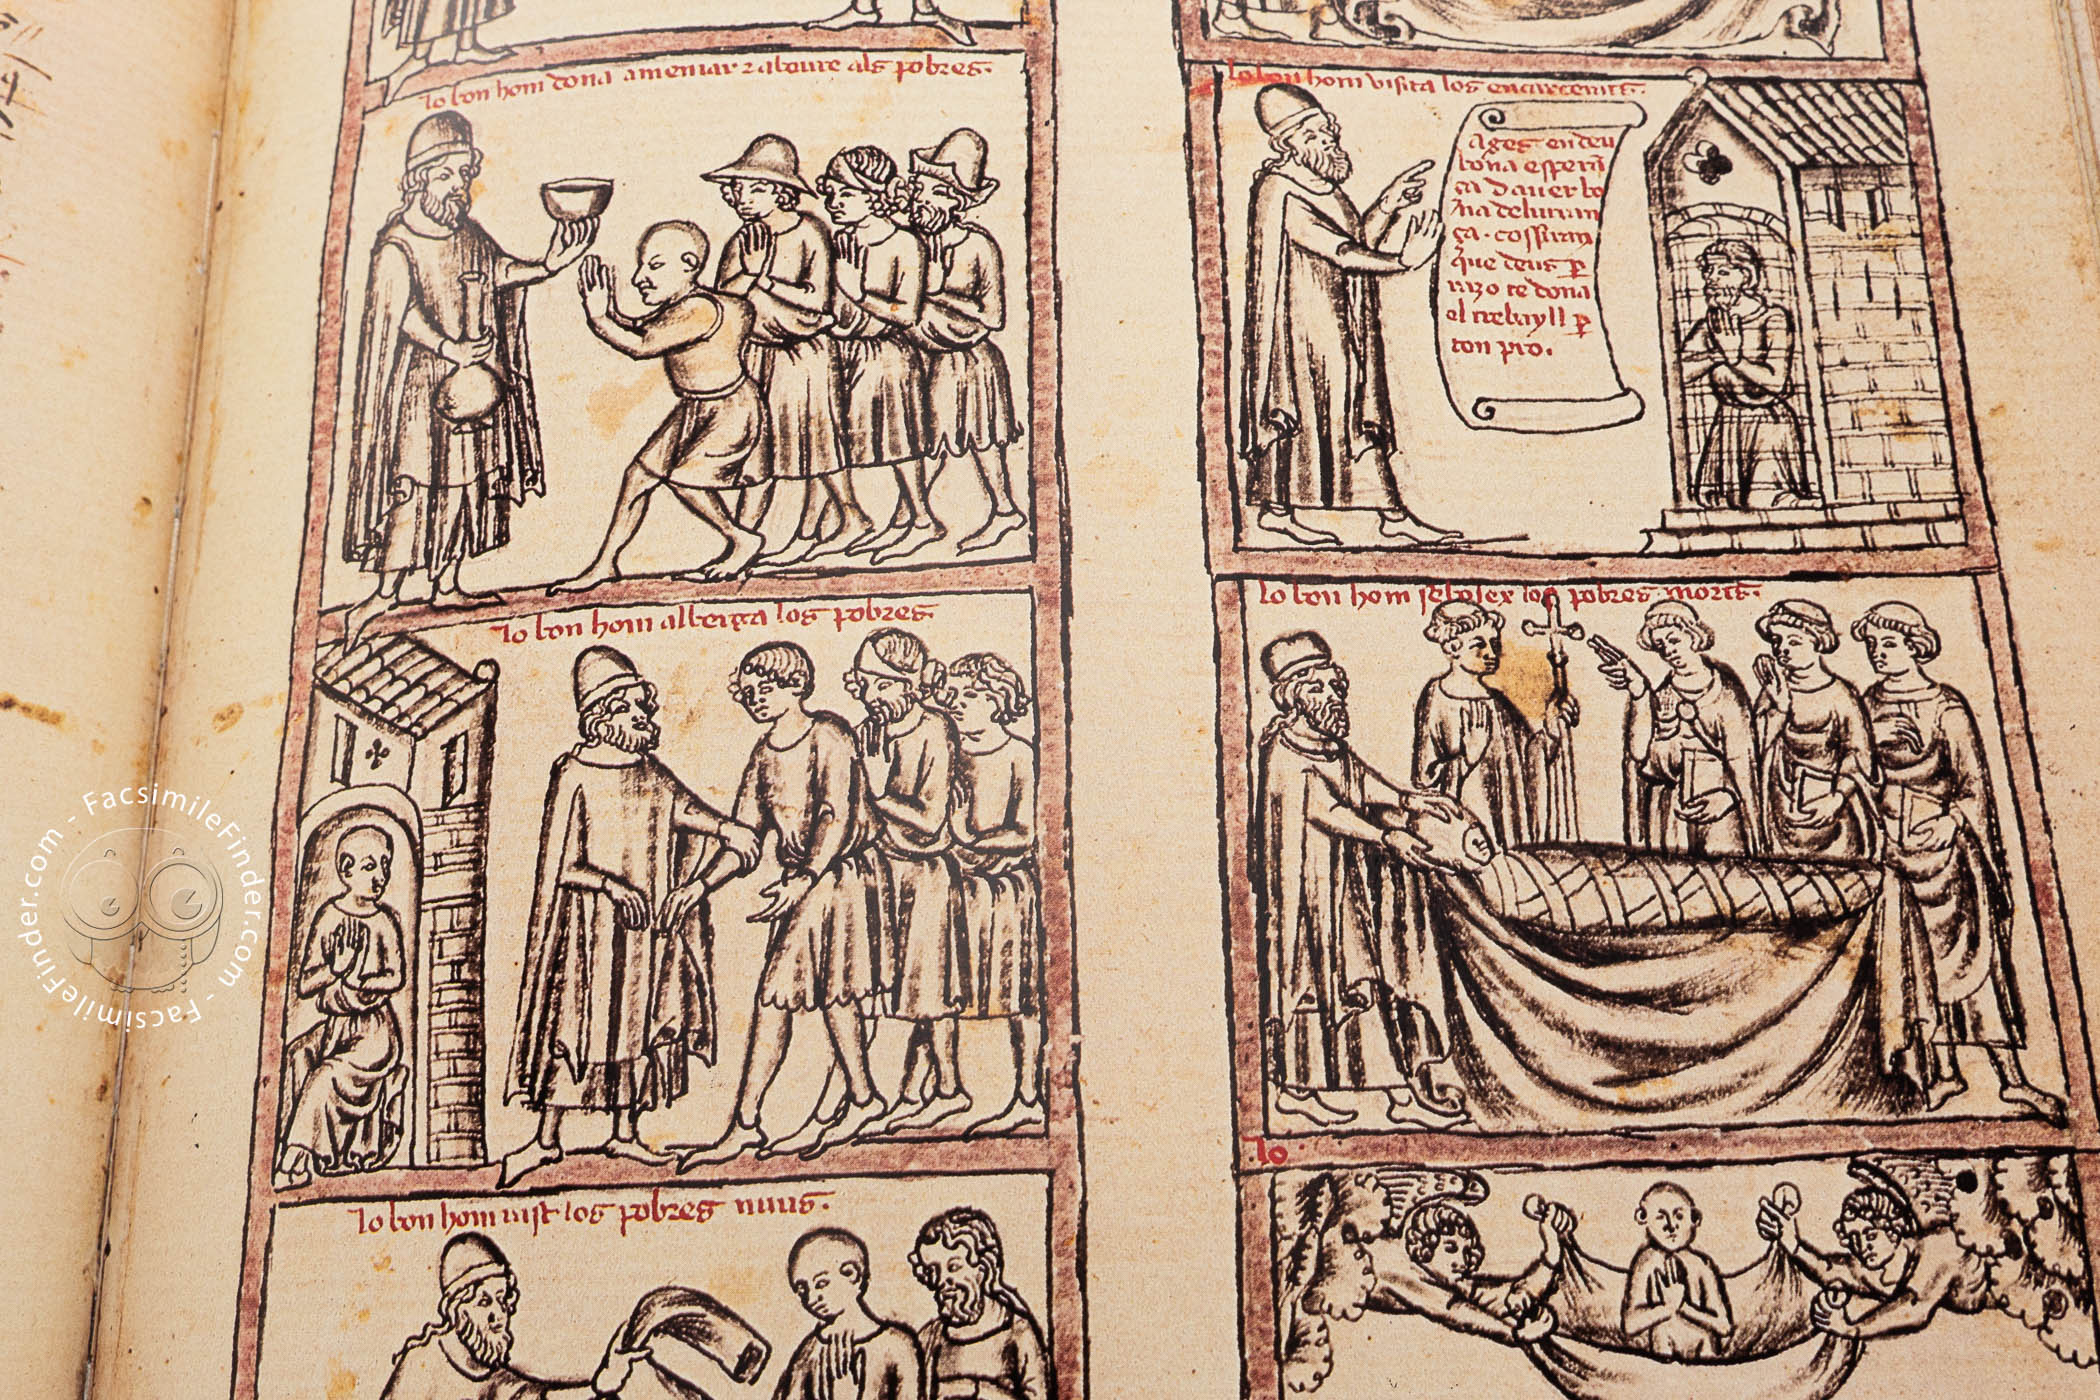 lo bon hom dona a meniar z a beure als pobres.
lo bon hom alberga los pobres
lo bon hom uist los pobres nuus.
lo bon hom visita los encarcerats.
Ages en deu
bona esperā
ça dauer bo
na deliuran
ça. cossiran
que deus p
razo te dona
el trebayll p
ton pro.
lo bon hom sebolex los pobres morts.
lo
FacsimileFinder.com - FacsimileFinder.com - FacsimileFinder.com